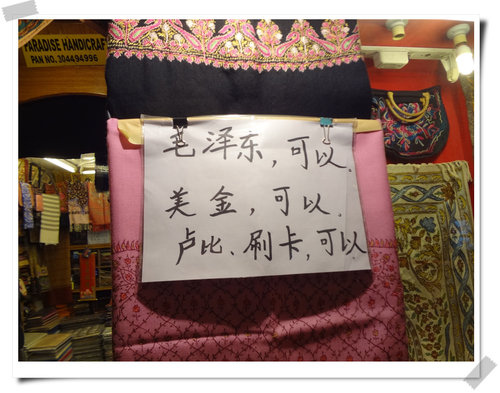 PARADISE HANDICRAF
PAN NO. 304494996
毛泽东,可以.
美金,可以.
卢比、刷卡,可以